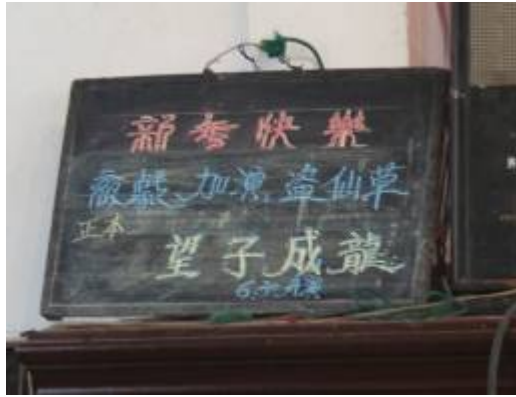 新春快樂
夜戲 加演 盗仙草
正本
望子成龍